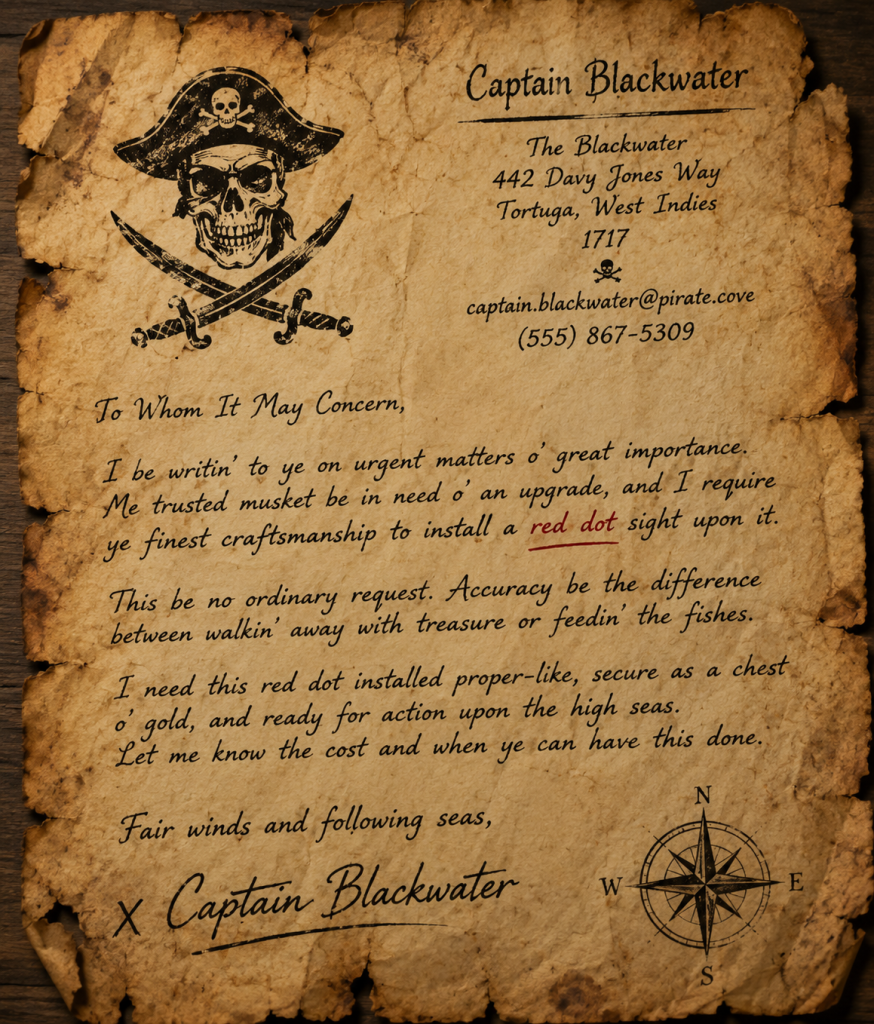 Captain Blackwater
The Blackwater
442 Davy Jones Way
Tortuga, West Indies
1717
captain.blackwater@pirate.cove
(555) 867-5309
To Whom It May Concern,
I be writin' to ye on urgent matters o' great importance.
Me trusted musket be in need o' an upgrade, and I require
ye finest craftsmanship to install a red dot sight upon it.
This be no ordinary request. Accuracy be the difference
between walkin' away with treasure or feedin' the fishes.
I need this red dot installed proper-like, secure as a chest
o' gold, and ready for action upon the high seas.
Let me know the cost and when ye can have this done.
Fair winds and following seas,
X Captain Blackwater
N
W E
S